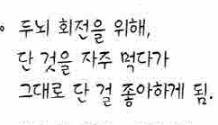 두뇌 회전을 위해,
단 것을 자주 먹다가
그대로 단 걸 좋아하게 됨.